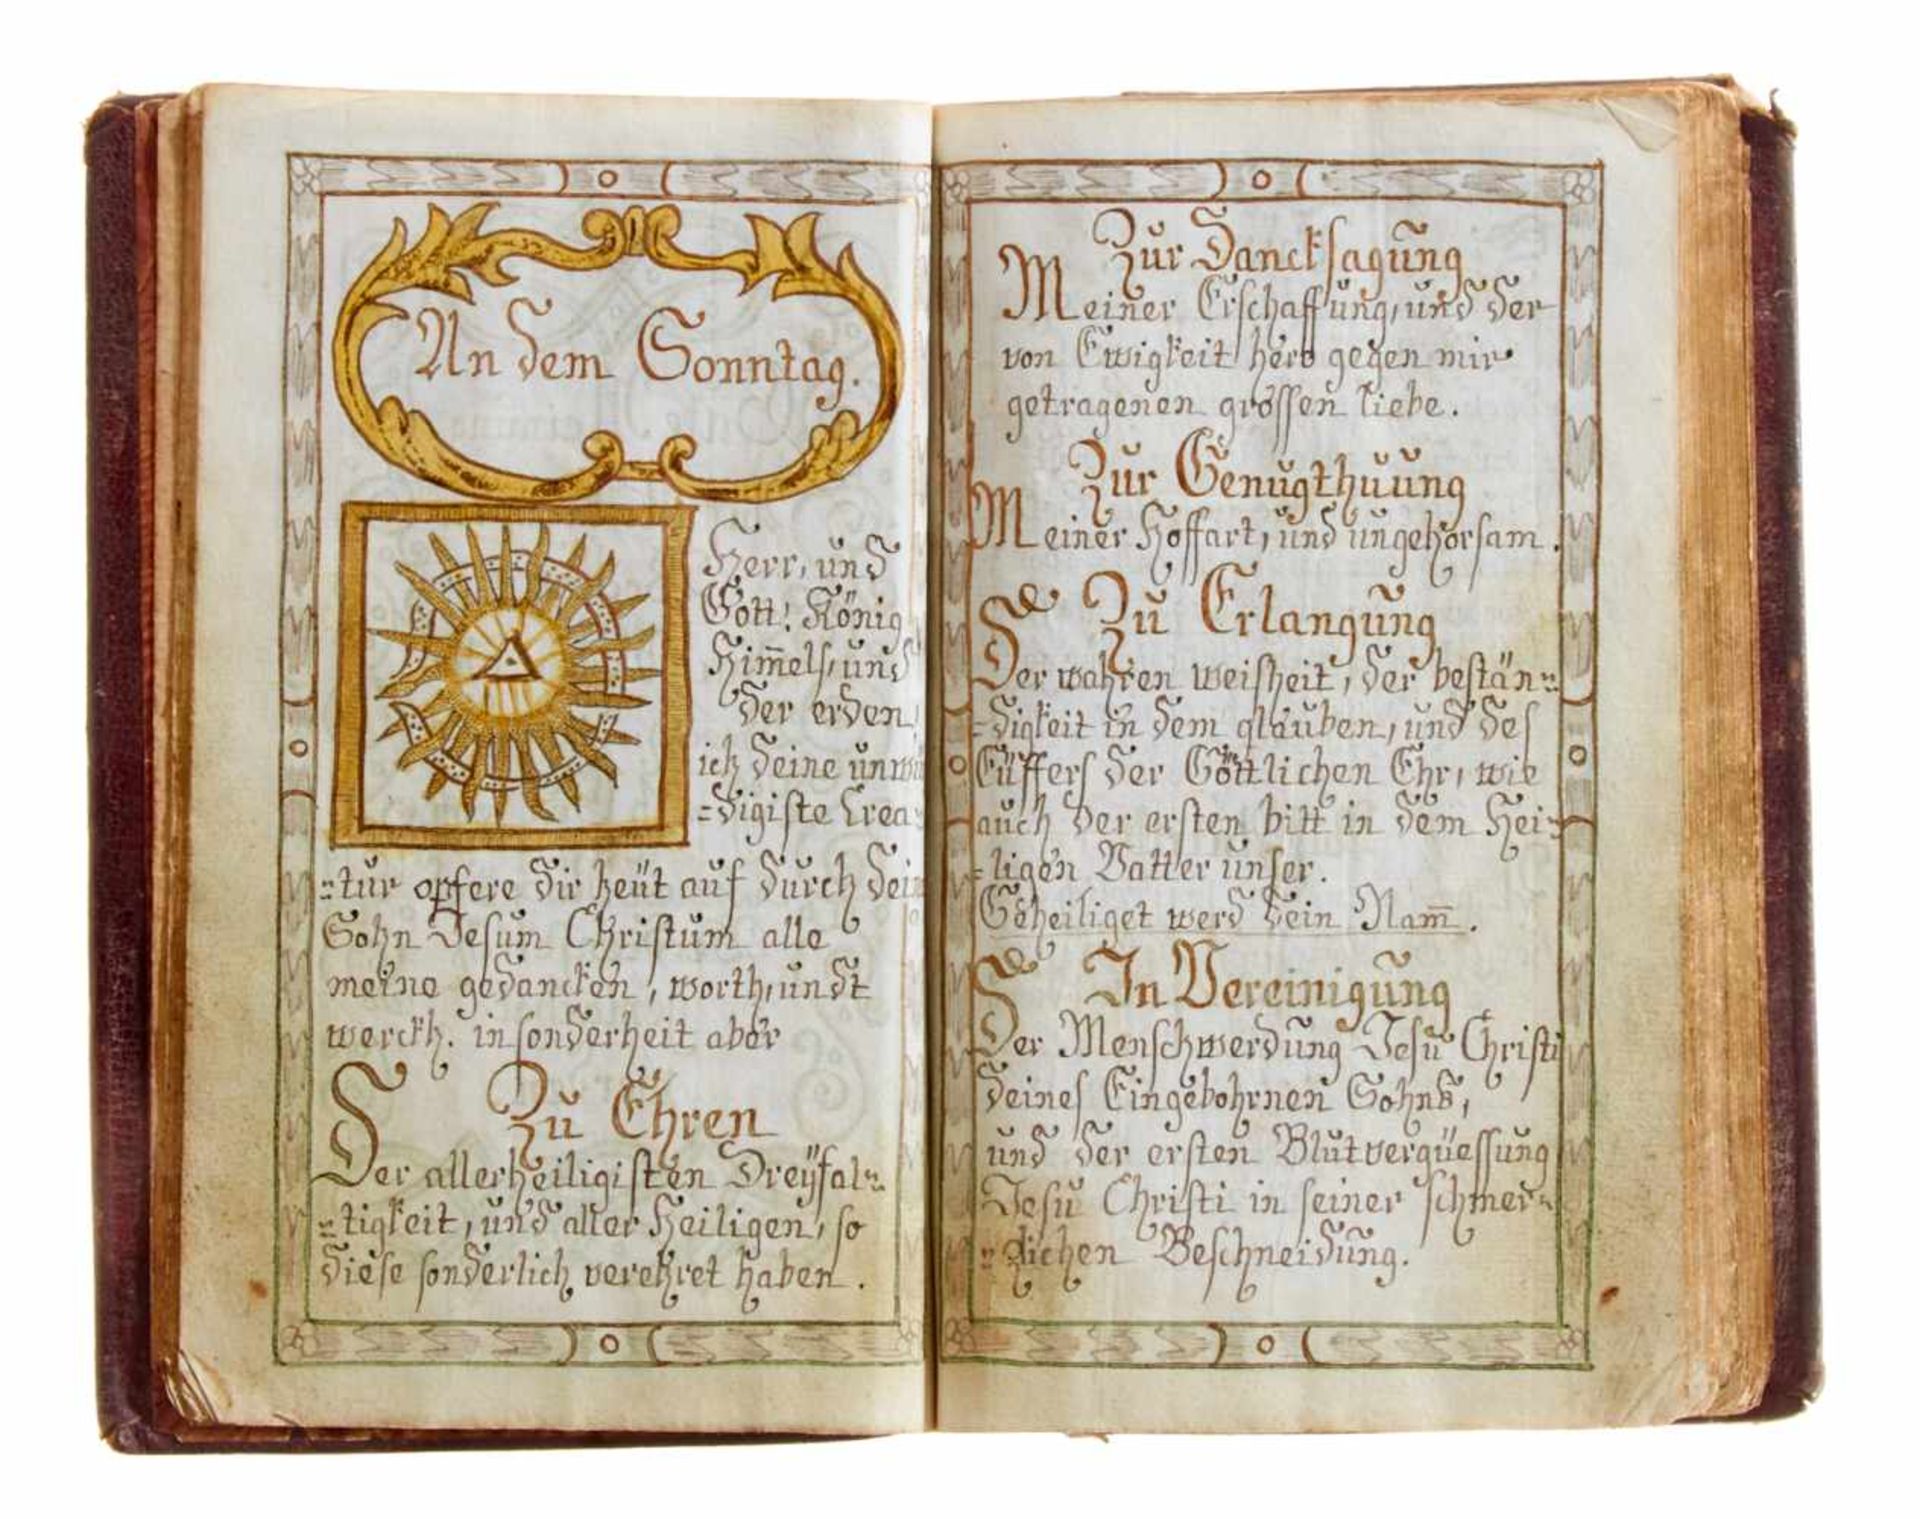 An dem Sonntag.
Herr, und
Gott! König
Himels, und
der erden,
ich deine unwür
=digiste Crea=
=tur opfere dir heüt auf durch dein
Sohn Jesum Christum alle
meine gedancken, worth, undt
werckh. in sonderheit aber
Zu Ehren
Der allerheiligisten Dreÿfal=
=tigkeit, und aller Heiligen, so
diese sonderlich verehret haben.
Zur Dancksagung
Meiner Erschaffung, und der
von Ewigkeit hero gegen mir
getragenen grossen liebe.
Zur Genugthuung
Meiner Hoffart, und ungehorsam.
Zu Erlangung
Der wahren weisheit, der bestän=
=digkeit in dem glauben, und des
Eüffers der Göttlichen Ehr, wie
auch der ersten bitt in dem Hei=
=ligen Vatter unser.
Geheiliget werd dein Nam̅.
In Vereinigung
Der Menschwerdung Jesu Christi
deines Eingebohrnen Sohns,
und der ersten Blutvergüessung
Jesu Christi in seiner schmer=
=zlichen Beschneidung.